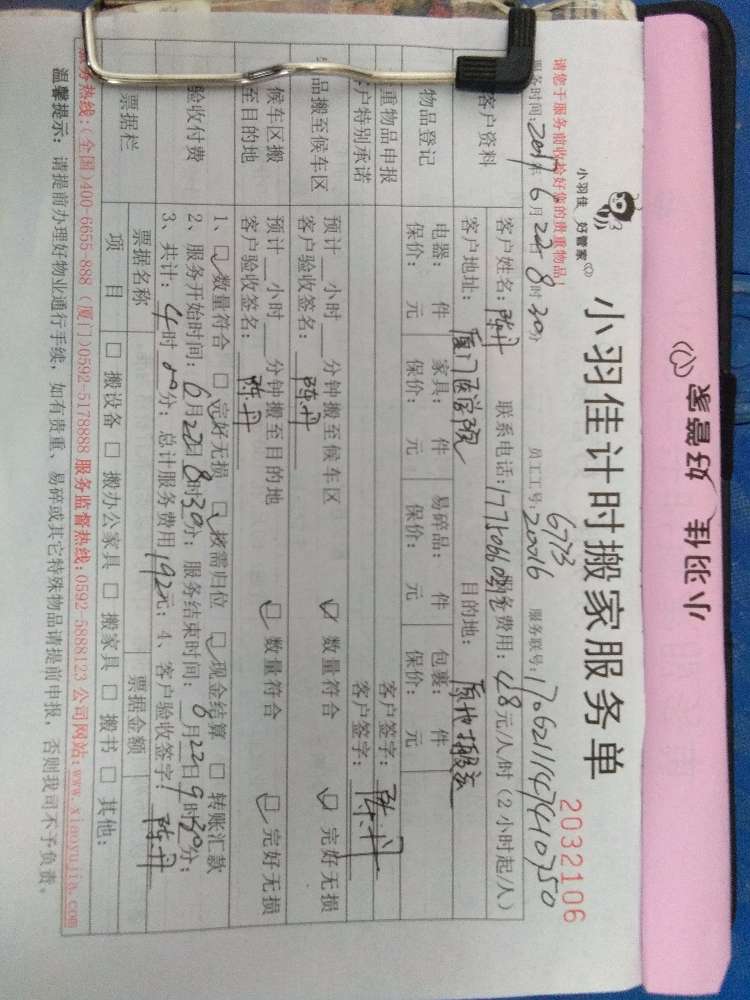 小羽佳 好管家
小羽佳 好管家
小羽佳计时搬家服务单
2032106
请您于服务前收检好您的贵重物品!
服务时间:2017年6月22日8时30分 员工工号:6773 20016 服务联号:17062111474410750
客户资料 客户姓名:陈丹 联系电话: 服务费用:48元/人/时(2小时起/人)
客户地址:厦门医学院 目的地:原地搬运
物品登记 电器: 件 家具: 件 易碎品: 件 包裹: 件
保价: 元 保价: 元 保价: 元 保价: 元
贵重物品申报 客户签字:陈丹
客户特别承诺 客户签字:
物品搬至候车区 预计 小时 分钟搬至候车区 ☑ 数量符合 ☑ 完好无损
客户验收签名:陈丹
候车区搬至目的地 预计 小时 分钟搬至目的地 ☑ 数量符合 ☑ 完好无损
客户验收签名:陈丹
验收付费 1、☑ 数量符合 ☑ 完好无损 ☑ 按需归位 ☑ 现金结算 □ 转账汇款
2、服务开始时间:6月22日8时30分;服务结束时间:6月22日9时30分;
3、共计:4时00分;总计服务费用192元;4、客户验收签字:陈丹
票据栏 票据名称 票据金额
项目 □ 搬设备 □ 搬办公家具 □ 搬家具 □ 搬书 □ 其他:
服务热线:(全国)400-6655-888 (厦门)0592-5178888 服务监督热线:0592-5888123 公司网站:www.xiaoyujia.com
温馨提示: 请提前办理好物业通行手续,如有贵重、易碎或其它特殊物品请提前申报,否则我司不予负责。